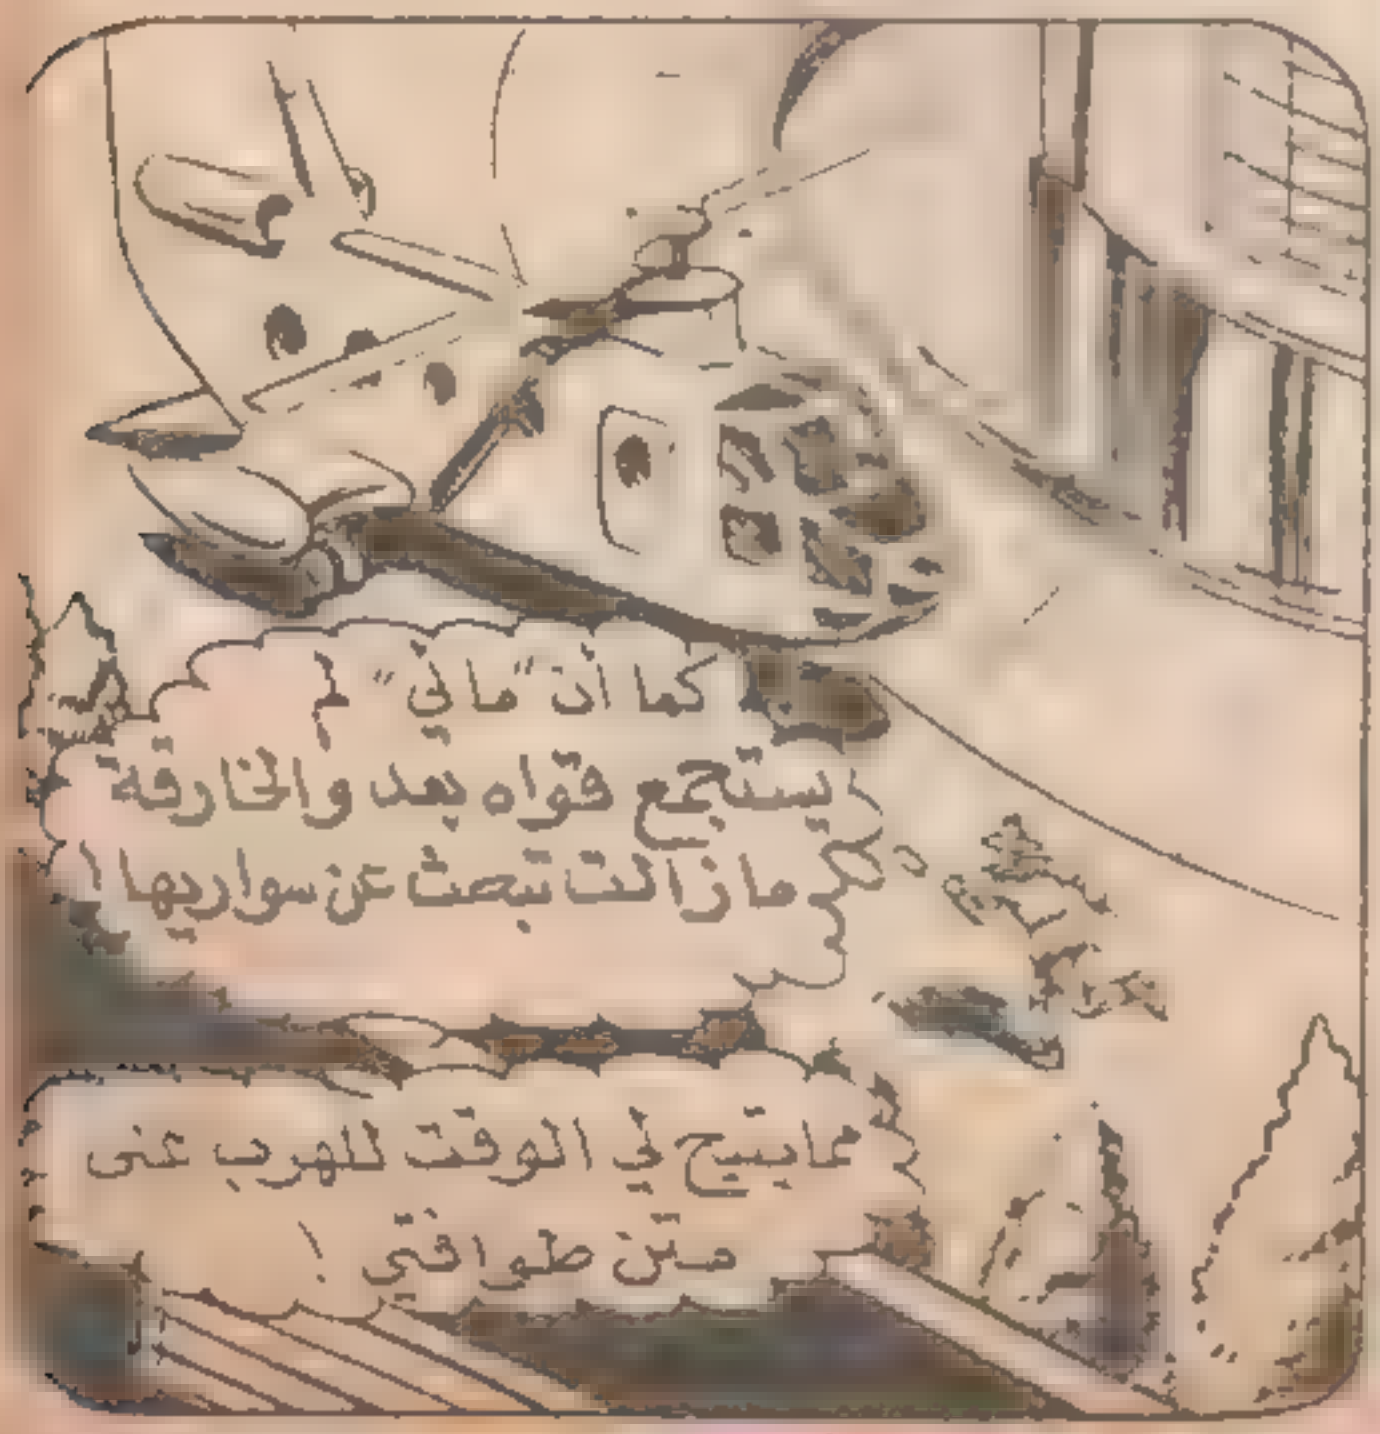 كما أن "ماني" لم
يستجمع قواه بعد والخارقة
ما زالت تبحث عن سواريها !
مما يتيح لي الوقت للهرب على
متن طوافتي !